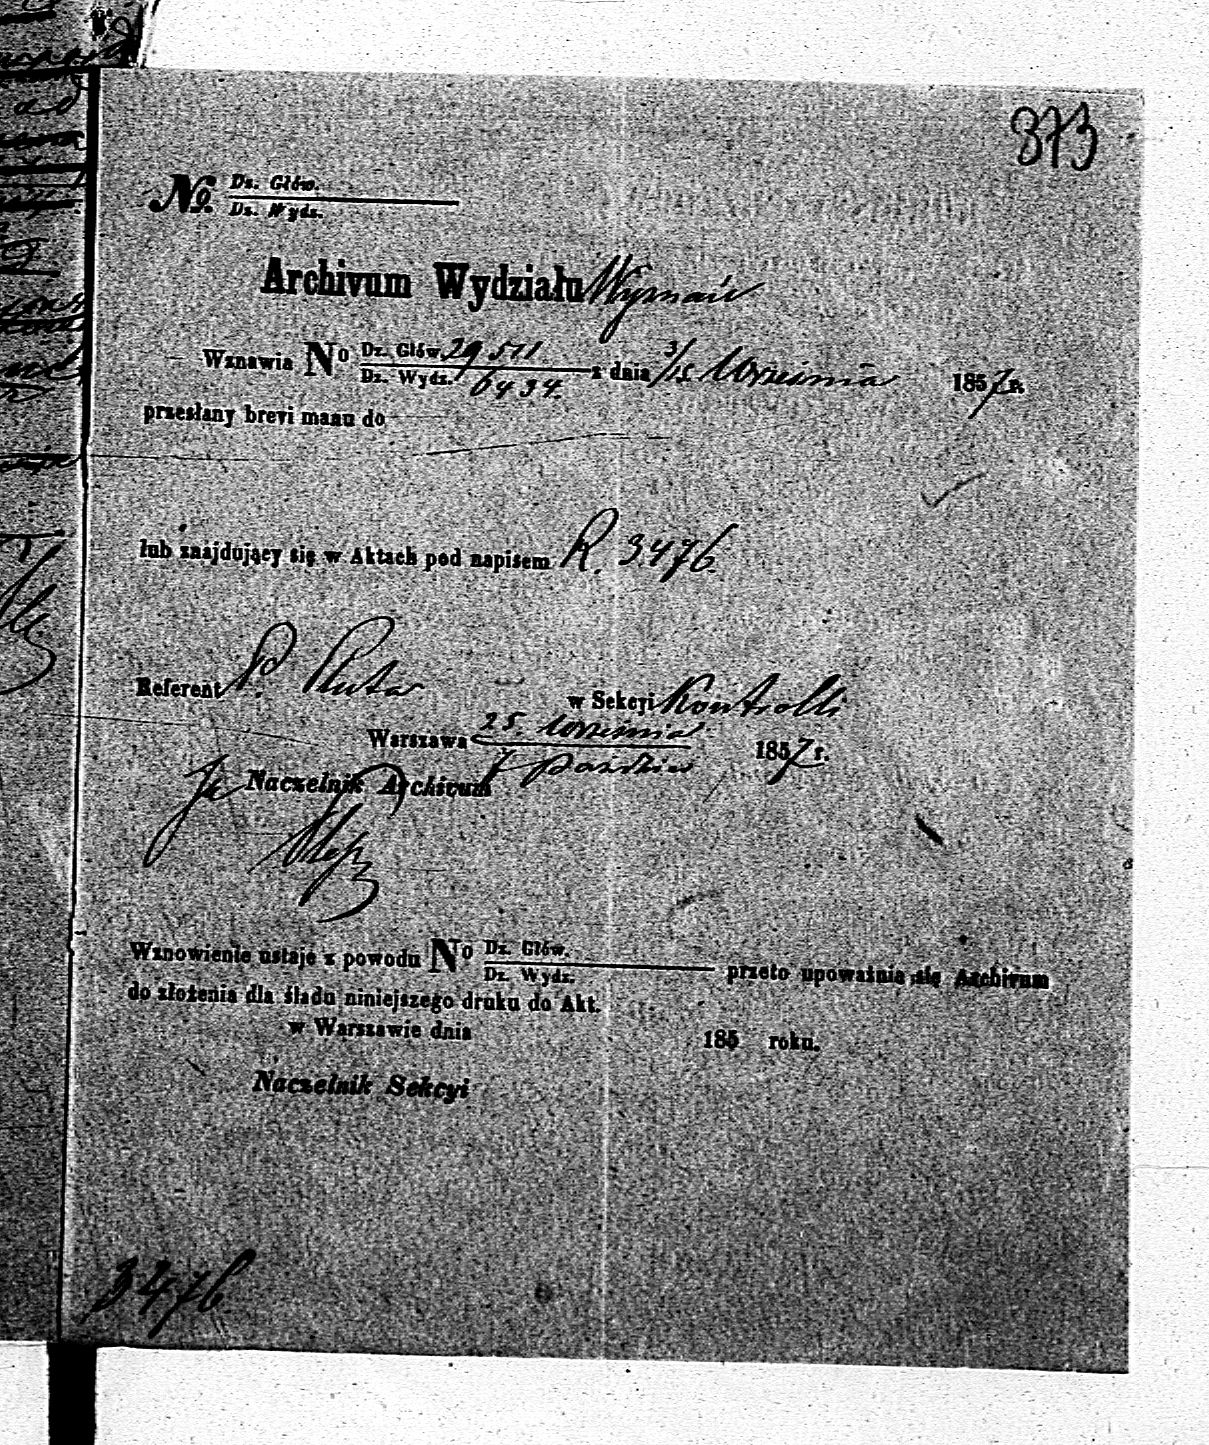 373
No. Dz. Głów.
Dz. Wydz.
Archivum Wydziału Wyznań
Wznawia No Dz. Głów. 29511 z dnia 3/15 Września 1857 r.
Dz. Wydz. 6434.
przesłany brevi manu do
łub znajdujący się w Aktach pod napisem R. 3476.
Referent P. Pluta w Sekcyi Kontrolli
Warszawa 25. Września 1857 r.
7 Paździer
Naczelnik Archivum
Wznowienie ustaje z powodu No Dz. Głów. przeto upoważnia się Archivum
Dz. Wydz.
do złożenia dla śladu niniejszego druku do Akt.
w Warszawie dnia 185 roku.
Naczelnik Sekcyi
3476